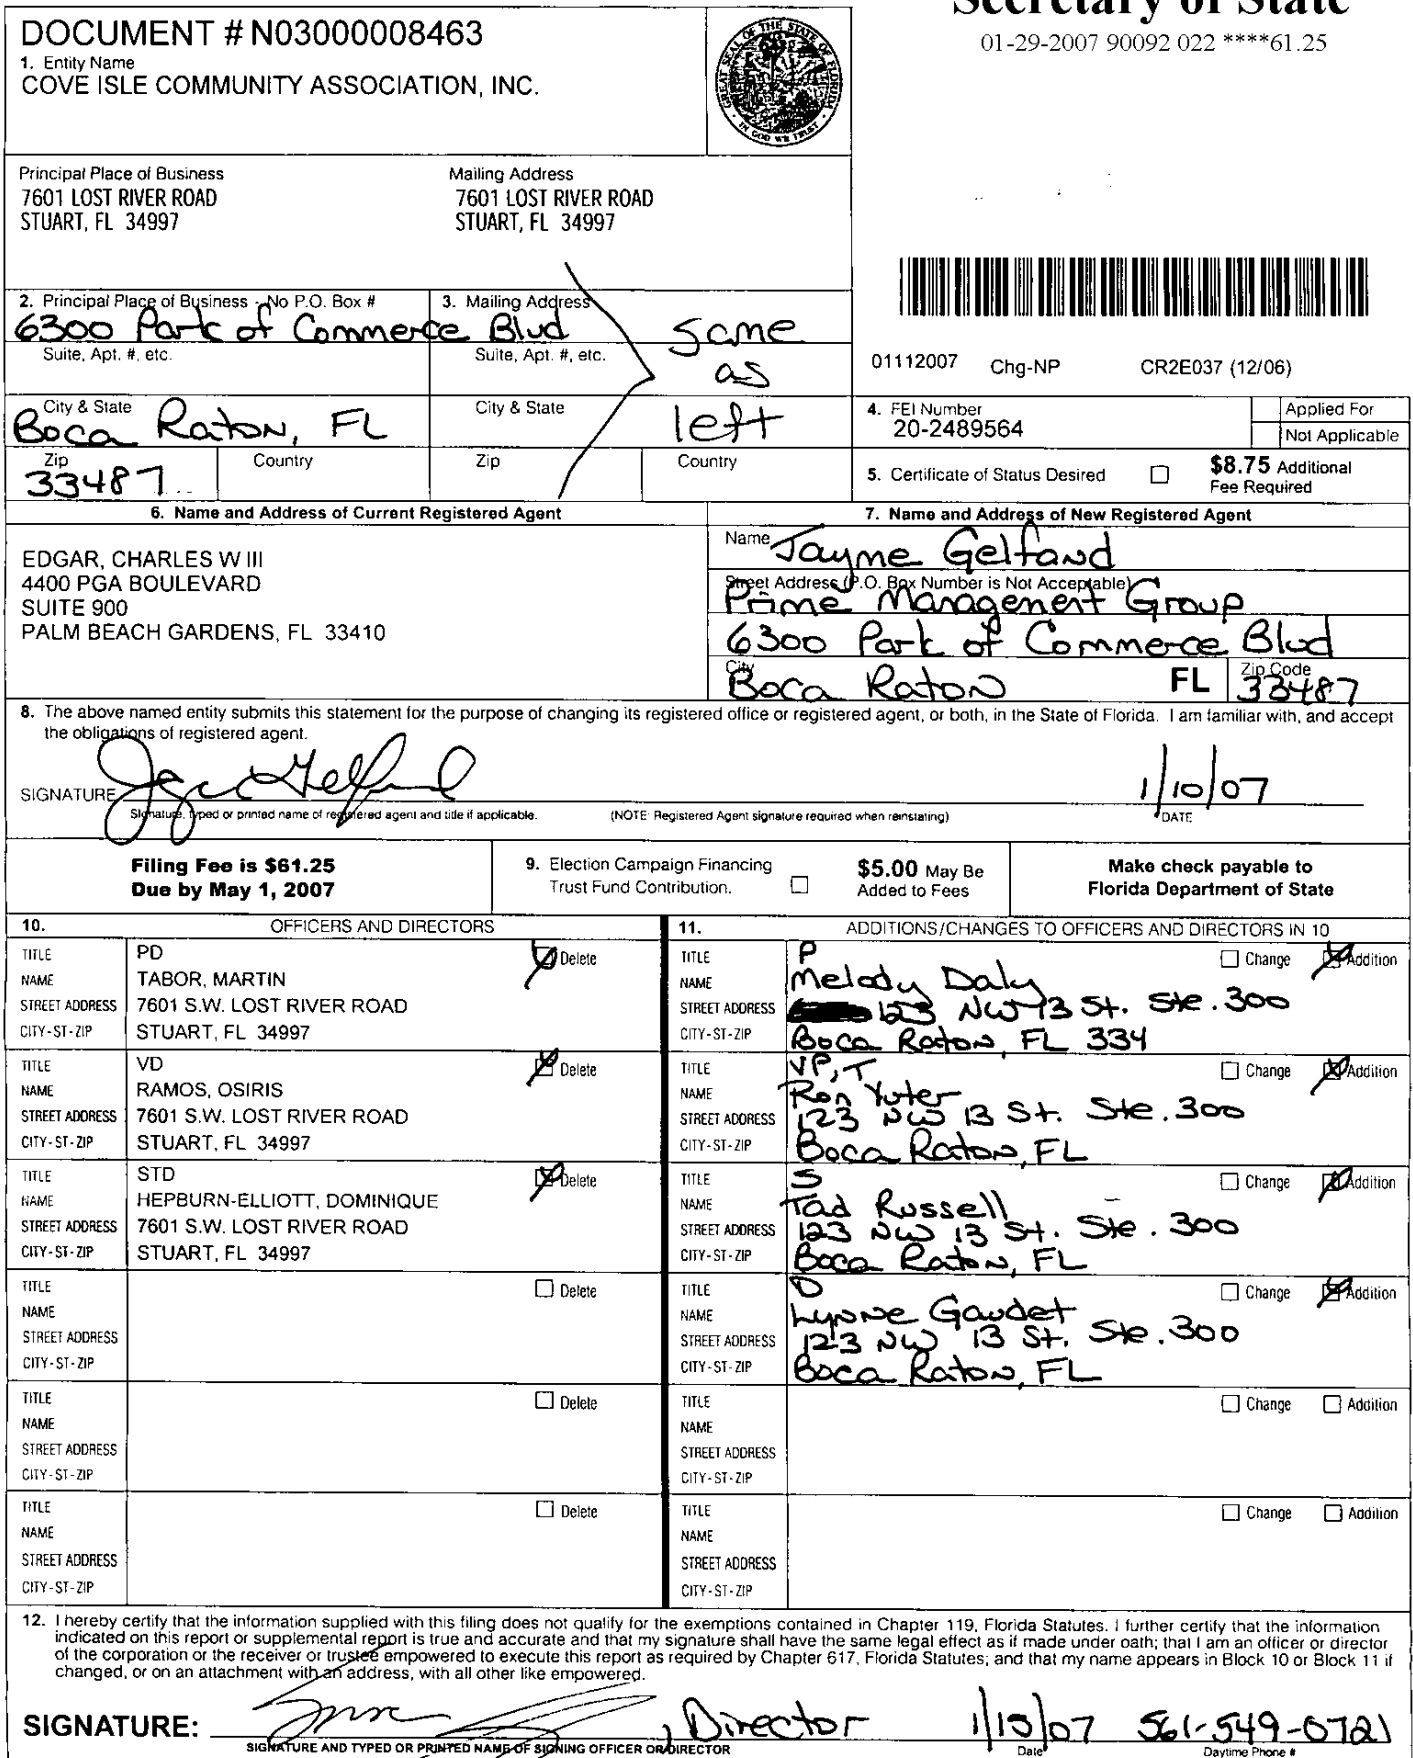 Secretary of State
01-29-2007 90092 022 ****61.25
DOCUMENT # N03000008463
1. Entity Name
COVE ISLE COMMUNITY ASSOCIATION, INC.
GREAT SEAL OF THE STATE OF FLORIDA
IN GOD WE TRUST
Principal Place of Business
7601 LOST RIVER ROAD
STUART, FL 34997
Mailing Address
7601 LOST RIVER ROAD
STUART, FL 34997
2. Principal Place of Business - No P.O. Box #
6300 Park of Commerce Blvd
Suite, Apt. #, etc.
City & State
Boca Raton, FL
Zip
33487
Country
3. Mailing Address
same
as
left
Suite, Apt. #, etc.
City & State
Zip
Country
01112007 Chg-NP CR2E037 (12/06)
4. FEI Number
20-2489564
Applied For
Not Applicable
5. Certificate of Status Desired
$8.75 Additional
Fee Required
6. Name and Address of Current Registered Agent
EDGAR, CHARLES W III
4400 PGA BOULEVARD
SUITE 900
PALM BEACH GARDENS, FL 33410
7. Name and Address of New Registered Agent
Name Jayme Gelfand
Street Address (P.O. Box Number is Not Acceptable)
Prime Management Group
6300 Park of Commerce Blvd
City
Boca Raton FL
Zip Code
33487
8. The above named entity submits this statement for the purpose of changing its registered office or registered agent, or both, in the State of Florida. I am familiar with, and accept
the obligations of registered agent.
SIGNATURE 1/10/07
Signature, typed or printed name of registered agent and title if applicable. (NOTE: Registered Agent signature required when reinstating) DATE
Filing Fee is $61.25
Due by May 1, 2007
9. Election Campaign Financing
Trust Fund Contribution.
$5.00 May Be
Added to Fees
Make check payable to
Florida Department of State
10. OFFICERS AND DIRECTORS
TITLE PD Delete
NAME TABOR, MARTIN
STREET ADDRESS 7601 S.W. LOST RIVER ROAD
CITY-ST-ZIP STUART, FL 34997
TITLE VD Delete
NAME RAMOS, OSIRIS
STREET ADDRESS 7601 S.W. LOST RIVER ROAD
CITY-ST-ZIP STUART, FL 34997
TITLE STD Delete
NAME HEPBURN-ELLIOTT, DOMINIQUE
STREET ADDRESS 7601 S.W. LOST RIVER ROAD
CITY-ST-ZIP STUART, FL 34997
TITLE Delete
NAME
STREET ADDRESS
CITY-ST-ZIP
TITLE Delete
NAME
STREET ADDRESS
CITY-ST-ZIP
TITLE Delete
NAME
STREET ADDRESS
CITY-ST-ZIP
11. ADDITIONS/CHANGES TO OFFICERS AND DIRECTORS IN 10
TITLE P Change Addition
NAME Melody Daly
STREET ADDRESS 123 NW 13 St. Ste. 300
CITY-ST-ZIP Boca Raton, FL 334
TITLE VP, T Change Addition
NAME Ron Yuter
STREET ADDRESS 123 NW 13 St. Ste. 300
CITY-ST-ZIP Boca Raton, FL
TITLE S Change Addition
NAME Tad Russell
STREET ADDRESS 123 NW 13 St. Ste. 300
CITY-ST-ZIP Boca Raton, FL
TITLE D Change Addition
NAME Lynne Gaudet
STREET ADDRESS 123 NW 13 St. Ste. 300
CITY-ST-ZIP Boca Raton, FL
TITLE Change Addition
NAME
STREET ADDRESS
CITY-ST-ZIP
TITLE Change Addition
NAME
STREET ADDRESS
CITY-ST-ZIP
12. I hereby certify that the information supplied with this filing does not qualify for the exemptions contained in Chapter 119, Florida Statutes. I further certify that the information
indicated on this report or supplemental report is true and accurate and that my signature shall have the same legal effect as if made under oath; that I am an officer or director
of the corporation or the receiver or trustee empowered to execute this report as required by Chapter 617, Florida Statutes; and that my name appears in Block 10 or Block 11 if
changed, or on an attachment with an address, with all other like empowered.
SIGNATURE: , Director 1/15/07 561-549-0721
SIGNATURE AND TYPED OR PRINTED NAME OF SIGNING OFFICER OR DIRECTOR Date Daytime Phone #